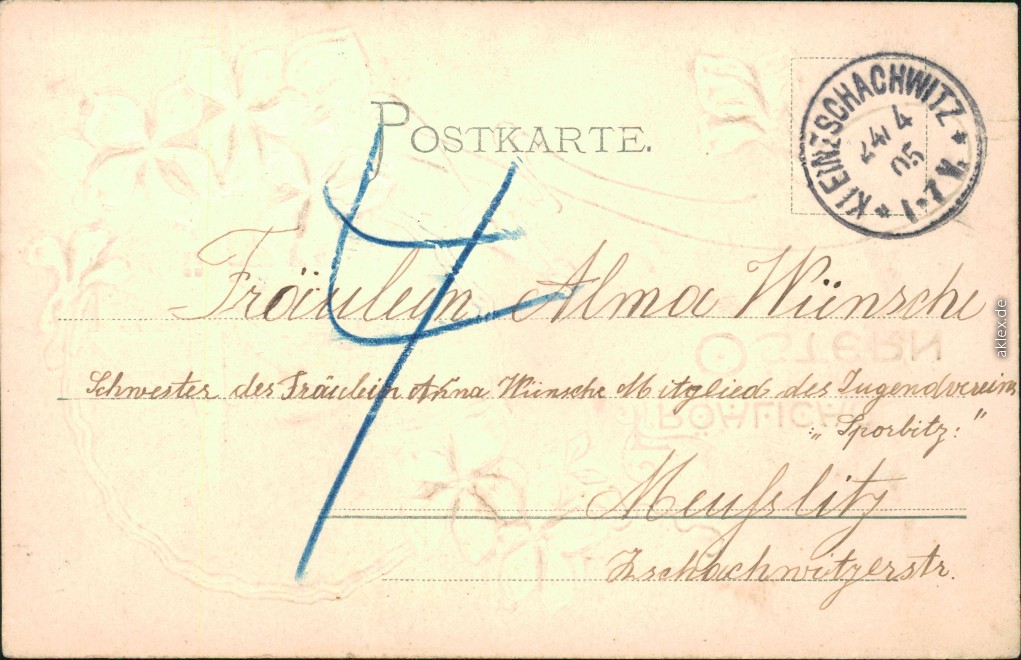 POSTKARTE.
KLEINZSCHACHWITZ
24 4
05
1-7 V.
4
Fräulein Alma Wünsche
Schwester des Fräulein Anna Wünsche Mitglied des Jugendvereins
„Sporbitz:"
Meußlitz
Zschachwitzerstr.
FRÖHLICHE
OSTERN
aklex.de